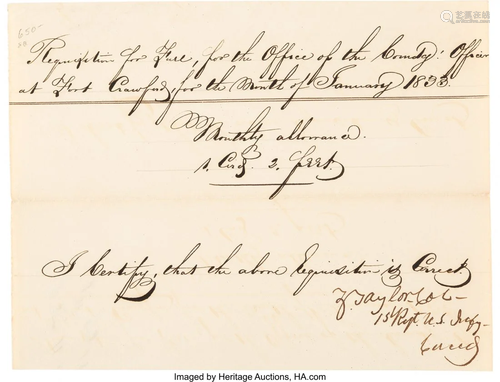 650-
Requisition for Fuel, for the Office of the Comdg: Officer
at Fort Crawford, for the Month of January 1833.
Monthly allowance.
1. Cord 2. feet.
I Certify, that the above Requisition is Correct
Z. Taylor Col
1st Regt U.S. Infy
Comdg
Imaged by Heritage Auctions, HA.com